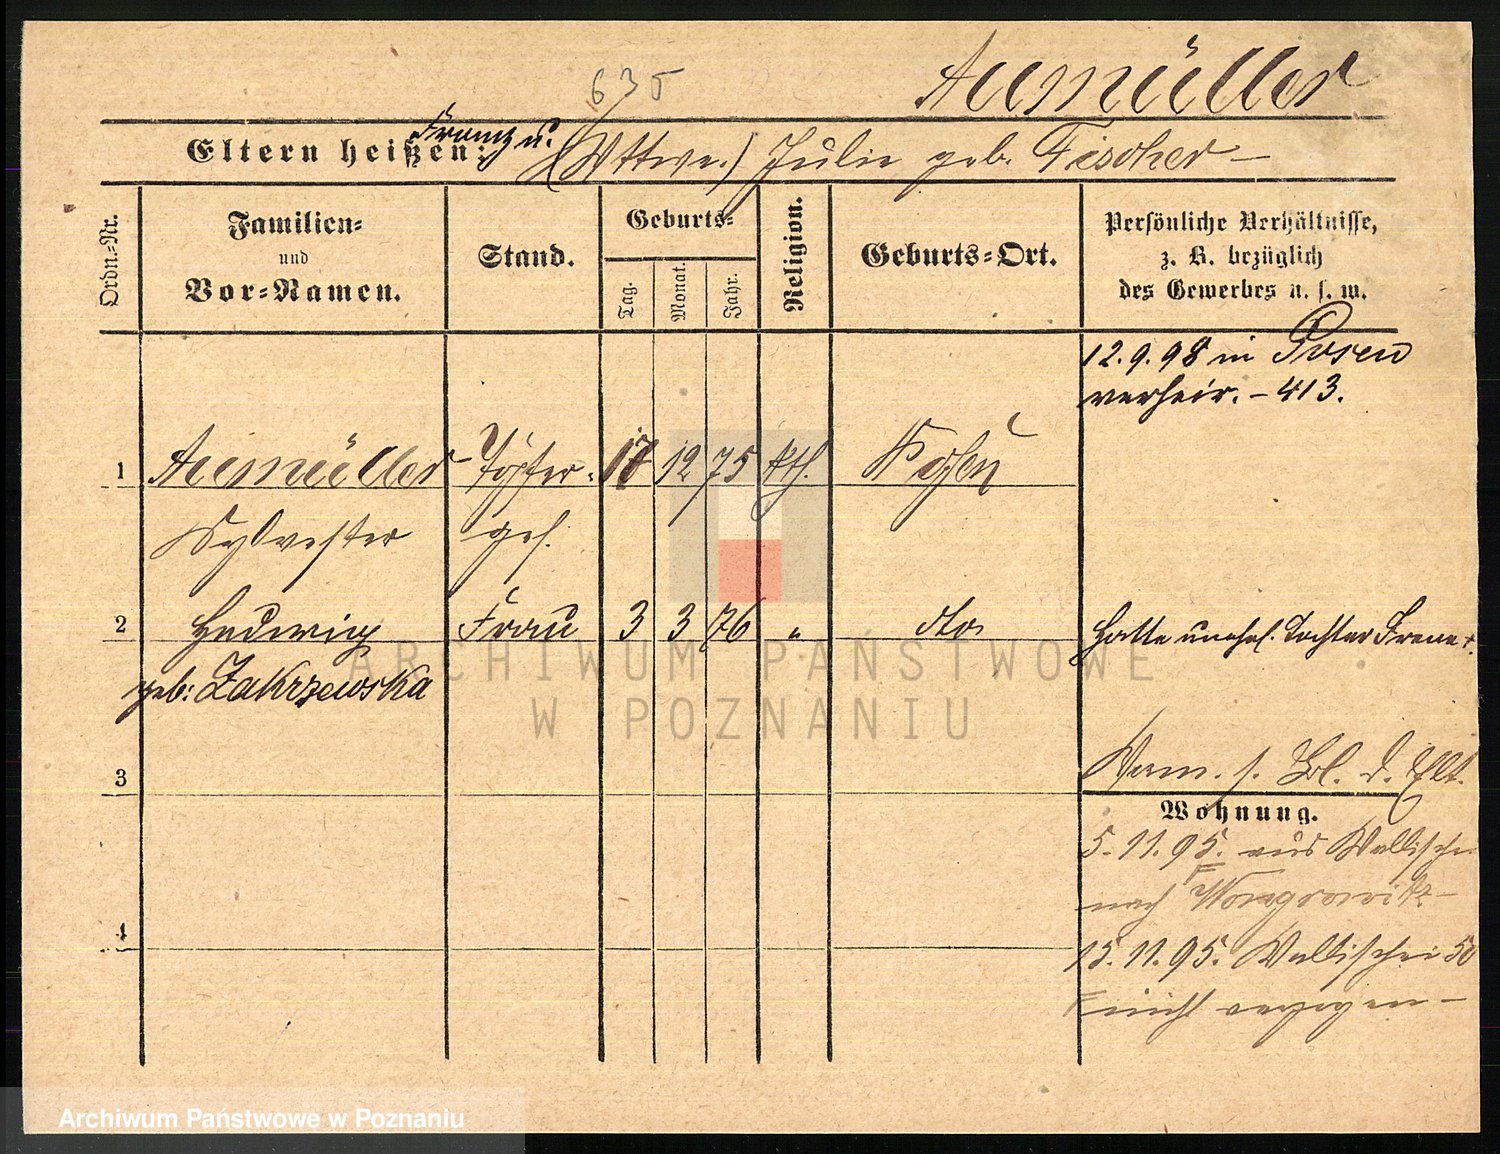 635
Aumüller
Eltern heißen: Franz u. (Wttwe.) Julie geb. Fischer –
Ordn.=Nr.
Familien=
und
Vor=Namen.
Stand.
Geburts=
Tag.
Monat.
Jahr.
Religion.
Geburts=Ort.
Persönliche Verhältnisse,
z. B. bezüglich
des Gewerbes u. s. w.
12.9.98 in Posen
verheir. – 413.
1 Aumüller Töpfer- 17 12 75 kth. Posen
Sylvester ges.
2 Hedwig Frau 3 3 76 " dto
geb: Zakrzewska
Hatte unehel. Tochter Irene †.
3
Verm. s. Bl. d. Elt.
Wohnung.
5.11.95. aus Wallischei
nach Wongrowitz –
4
15.11.95. Wallischei 50
nicht verzogen –
ARCHIWUM PAŃSTWOWE
W POZNANIU
Archiwum Państwowe w Poznaniu